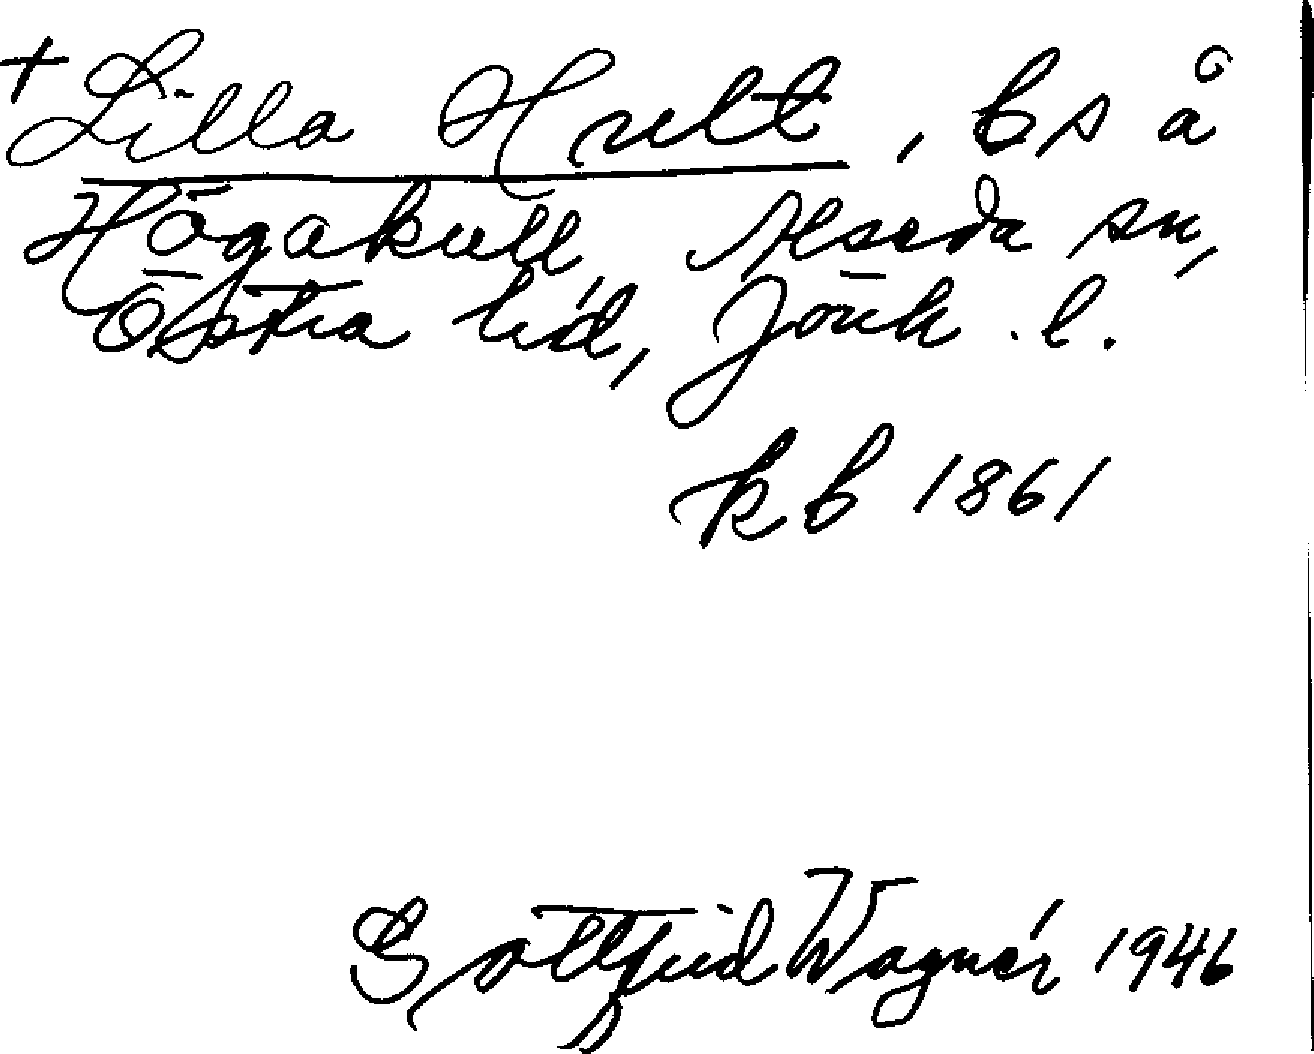 + Lilla Hult, bs å
Högakull, Alseda sn,
Östra hd, Jönk. l.
kb 1861
Gottfrid Wagnér 1946